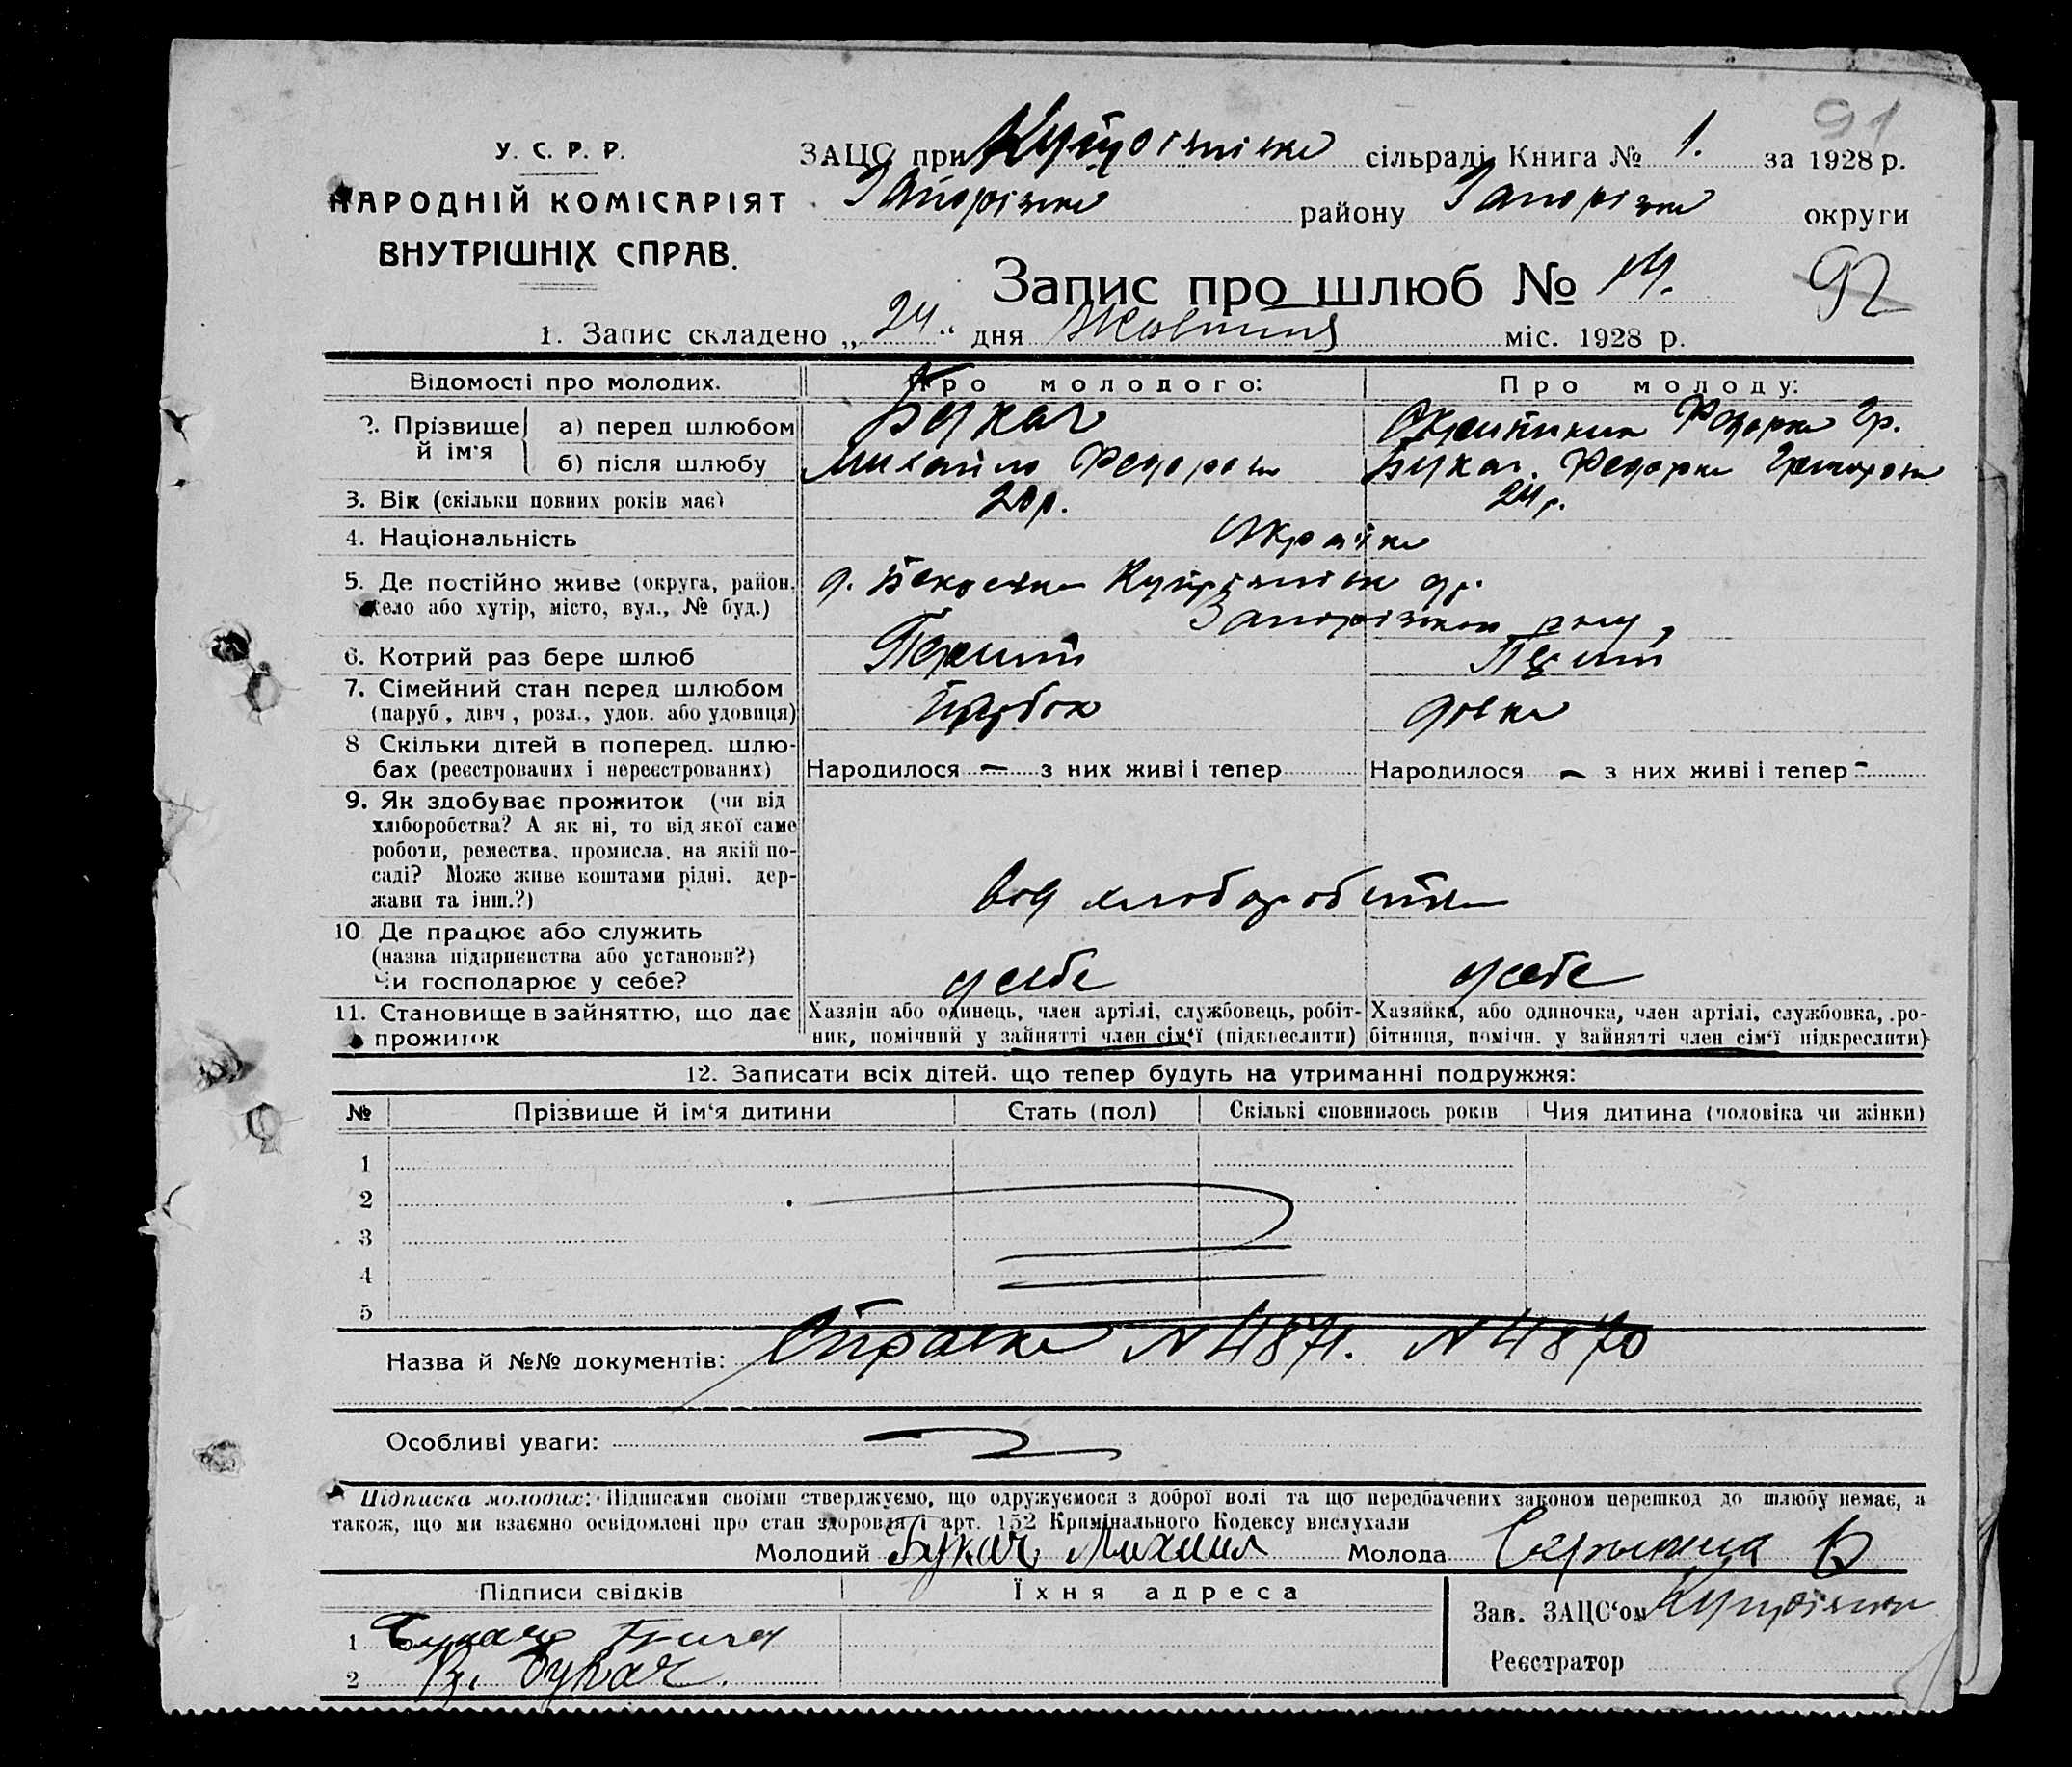 91
У. С. Р. Р.
НАРОДНІЙ КОМІСАРІЯТ
ВНУТРІШНІХ СПРАВ.
ЗАЦС при сільраді Книга № 1. за 1928 р.
Запорізьке району Запорізьке округи
Запис про шлюб № 14. 92
1. Запис складено „24“ дня Жовтня міс. 1928 р.
Відомості про молодих. Про молодого: Про молоду:
2. Прізвище й ім'я а) перед шлюбом Букач Федорка Гр.
б) після шлюбу Михайло Федоров Букач Федорка
3. Вік (скільки повних років має) 20р. 24р.
4. Національність Україн
5. Де постійно живе (округа, район,
село або хутір, місто, вул., № буд.)
6. Котрий раз бере шлюб Перший Перший
7. Сімейний стан перед шлюбом
(паруб., дівч., розл., удов. або удовиця) Парубок дівка
8 Скільки дітей в поперед. шлю-
бах (реєстрованих і нереєстрованих) Народилося — з них живі і тепер Народилося — з них живі і тепер -
9. Як здобуває прожиток (чи від
хліборобства? А як ні, то від якої саме
роботи, ремества, промисла, на якій по-
саді? Може живе коштами рідні, дер-
жави та інш.?) від хліборобства
10. Де працює або служить
(назва підприємства або установи?)
Чи господарює у себе? у себе у себе
11. Становище в зайняттю, що дає
прожиток
Хазяїн або одинець, член артілі, службовець, робіт-
ник, помічний у зайнятті член сім'ї (підкреслити)
Хазяйка, або одиночка, член артілі, службовка, ро-
бітниця, помічн. у зайнятті член сім'ї підкреслити)
12. Записати всіх дітей, що тепер будуть на утриманні подружжя:
№ Прізвище й ім'я дитини Стать (пол) Скількі сповнилось років Чия дитина (чоловіка чи жінки)
1
2
3
4
5
Назва й №№ документів: Справка № 4871. № 4870
Особливі уваги:
Підписка молодих: Підписами своїми стверджуємо, що одружуємося з доброї волі та що передбачених законом перешкод до шлюбу немає, а
також, що ми взаємно освідомлені про стан здоровля і арт. 152 Кримінального Кодексу вислухали
Молодий Букач Михаил Молода
Підписи свідків Їхня адреса
Зав. ЗАЦС'ом
1
2 Букач.
Реєстратор